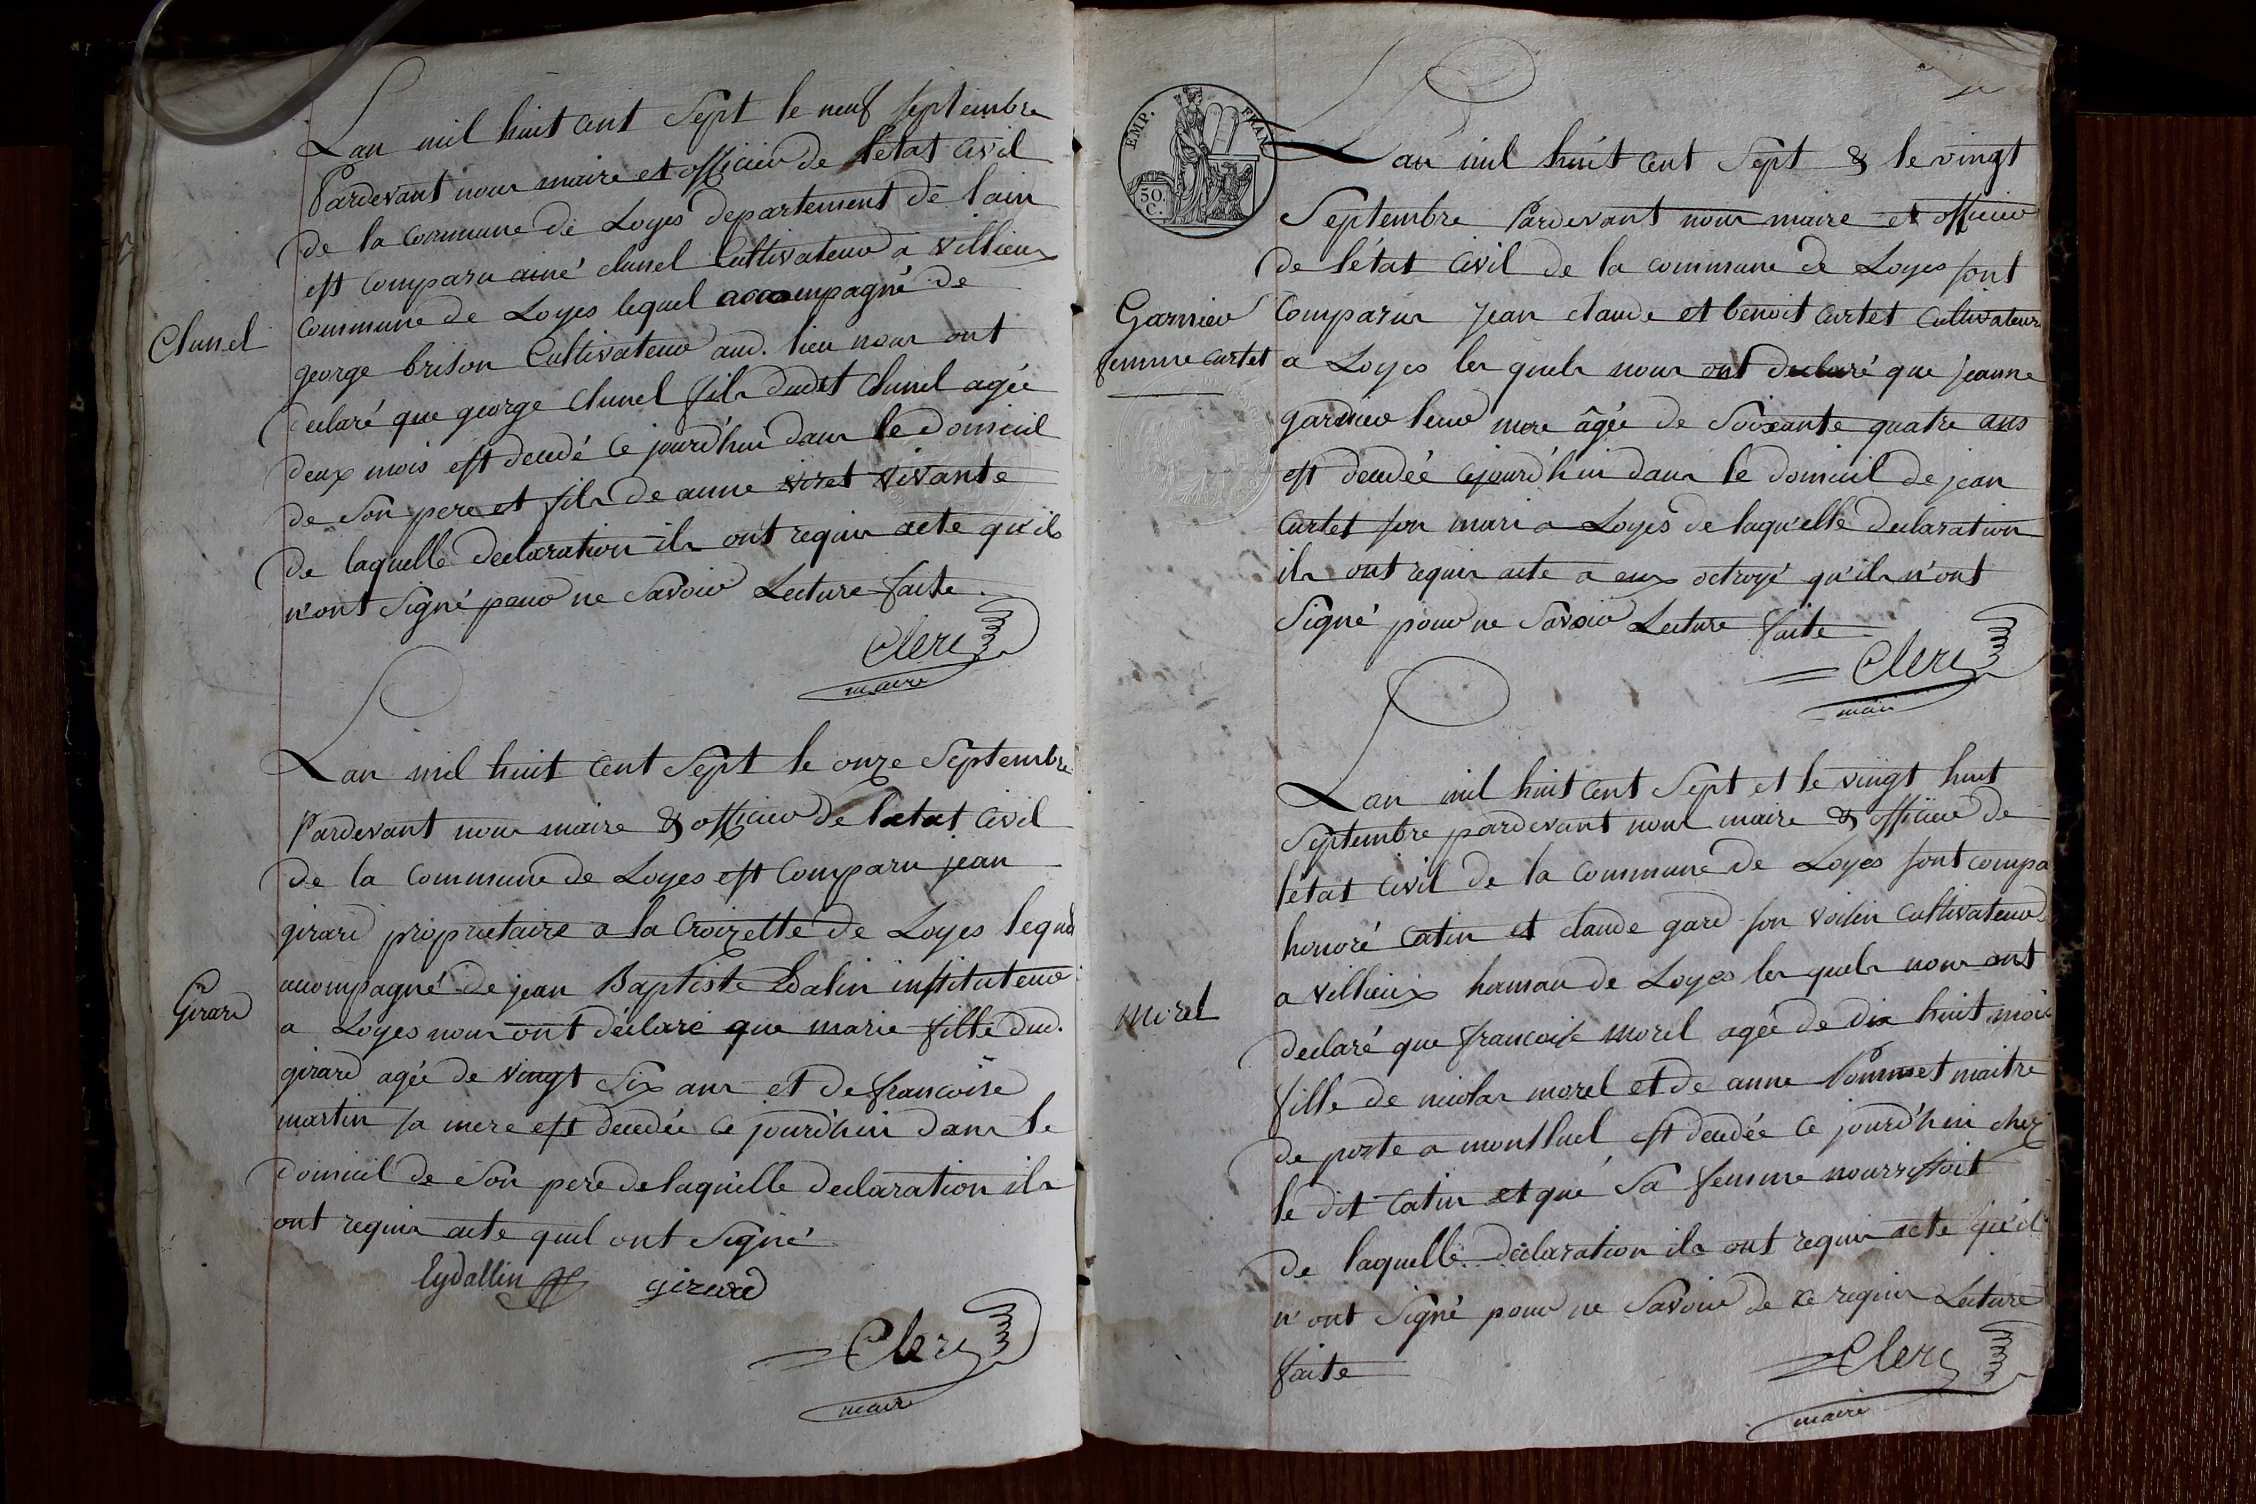 Lan mil huit cent Sept le neuf Septembre
Pardevant nous maire et officier de l'état Civil
de la commune de Loyes departement de lain
est comparu ainé clunel Cultivateur a villieux
Commune de Loyes lequel accompagné de
Clunel
george brison Cultivateur aud. lieu nous ont
declaré que george Clunel fils dudit Clunel agée
deux mois est decedé Ce jourd'hui dans le Domicil
de Son pere et fils de anne viret vivante
de laquelle declaration ils ont requis acte qu'ils
n'ont Signé pour ne Savoir Lecture faite
Clerc
maire
Lan mil huit Cent Sept le onze Septembre
Pardevant nous maire & officier de l'etat Civil
de la Commune de Loyes est Comparu jean
girard proprietaire a la Croizette de Loyes lequel
accompagné de jean Baptiste Dalin instituteur
Girard
a Loyes nous ont déclaré que marie fille dud.
girard agée de vingt Six ans et de francoise
martin sa mere est decedée Ce jourd'hui dans le
domicil de Son pere de laquelle declaration ils
ont requis acte quil ont Signé
Eydallin girard
Clerc
maire
EMP. FRAN.
50. C.
Lan mil huit Cent Sept & le vingt
Septembre Pardevant nous maire et officier
de l'état Civil de la commune de Loyes sont
Garnier
femme curtet
Comparus jean claude et benoit Curtet Cultivateurs
a Loyes les quels nous ont declaré que jeanne
garnier leur mere âgée de Soixante quatre ans
est decedée cejourd'hui dans le domicil de jean
Curtet son mari a Loyes de laquelle declaration
ils ont requis acte a eux octroyé qu'ils n'ont
Signé pour ne Savoir Lecture faite
Clerc
maire
Lan mil huit Cent Sept et le vingt huit
Septembre pardevant nous maire & officier de
létat Civil de la Commune de Loyes sont compa
honoré Catin et claude gard son voisin Cultivateur
a villieux hamau de Loyes les quels nous ont
morel
declaré que francoise morel agée de dix huit mois
fille de nicolas morel et de anne Pommet maitre
de poste a montluel est decedée Ce jourd'hui chez
le dit Catin et que Sa femme nourrissoit
de laquelle declaration ils ont requis acte qu'il
n'ont Signé pour ne Savoir de ce requis Lecture
faite
Clerc
maire